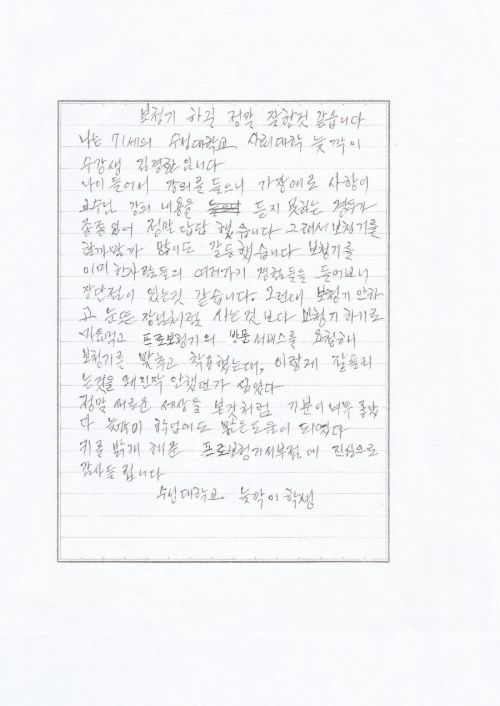 보청기 하길 정말 잘한것 같습니다
나는 71세의 수성대학교 사회대학 늦깍이
수강생 김경환 입니다
나이들어서 강의를 들으니 가장애로 사항이
교수님 강의 내용을 듣지 못하는 경우가
종종있어 정말 답답 했습니다 그래서 보청기를
할까말까 많이도 갈등했습니다 보청기를
이미 한사람들의 여러가지 경험들을 들어보니
장단점이 있는것 같습니다. 그런대 보청기 안하
고 눈뜬 장님처럼 사는것 보다 보청기 하기로
마음먹고 프로보청기의 방문서비스를 요청해
보청기를 맞추고 착용했는데, 이렇게 잘들리
는것을 왜진작 안했던가 싶었다
정말 새로운 세상을 본것처럼 기분이 너무 좋았
다 늦깍이 수업에도 많은도움이 되였다
귀를 밝게 해준 프로보청기서부점에 진심으로
감사들 립니다
수성대학교 늦깍이 학생